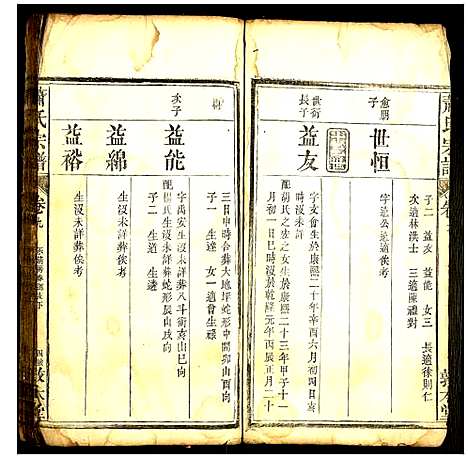 蕭氏宗譜
子二 益友 益能 女三 長適徐則仁
次適林洪士 三適陳禮對
愈朋
子
世恒
字遠公遠適後考
世衍
長子
益友
時沒未詳
字文會生於康熙二十年辛酉六月初四日亥
配胡氏之
女生於康熙二十三年甲子十一
月初一日巳時沒於乾隆元年丙辰正月二十
三日申時合葬大地坪蛇形中間卯山酉向
子一 生達 女一適曾生祿
次子
益能
字萬安生沒未詳葬八斗衕亥山巳向
配楊氏生沒未詳葬蛇形辰山戌向
子二 生道 生選
益綿
生沒未詳葬俟考
益裕
生沒未詳葬俟考
蕭氏宗譜
卷
敦本堂